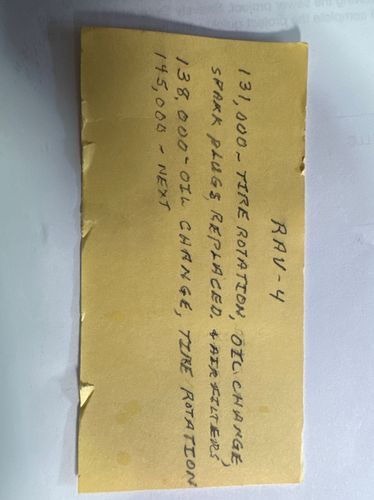 RAV-4
131,000- TIRE ROTATION, OIL CHANGE,
SPARK PLUGS, REPLACED. & AIR FILTERS
138,000- OIL CHANGE, TIRE ROTATION
145,000 - NEXT